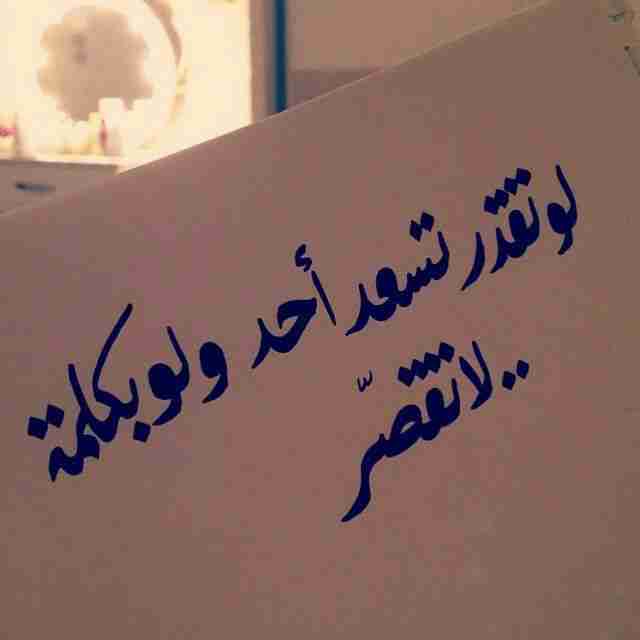 لو تقدر تسعد أحد ولو بكلمة
.. لا تقصّر